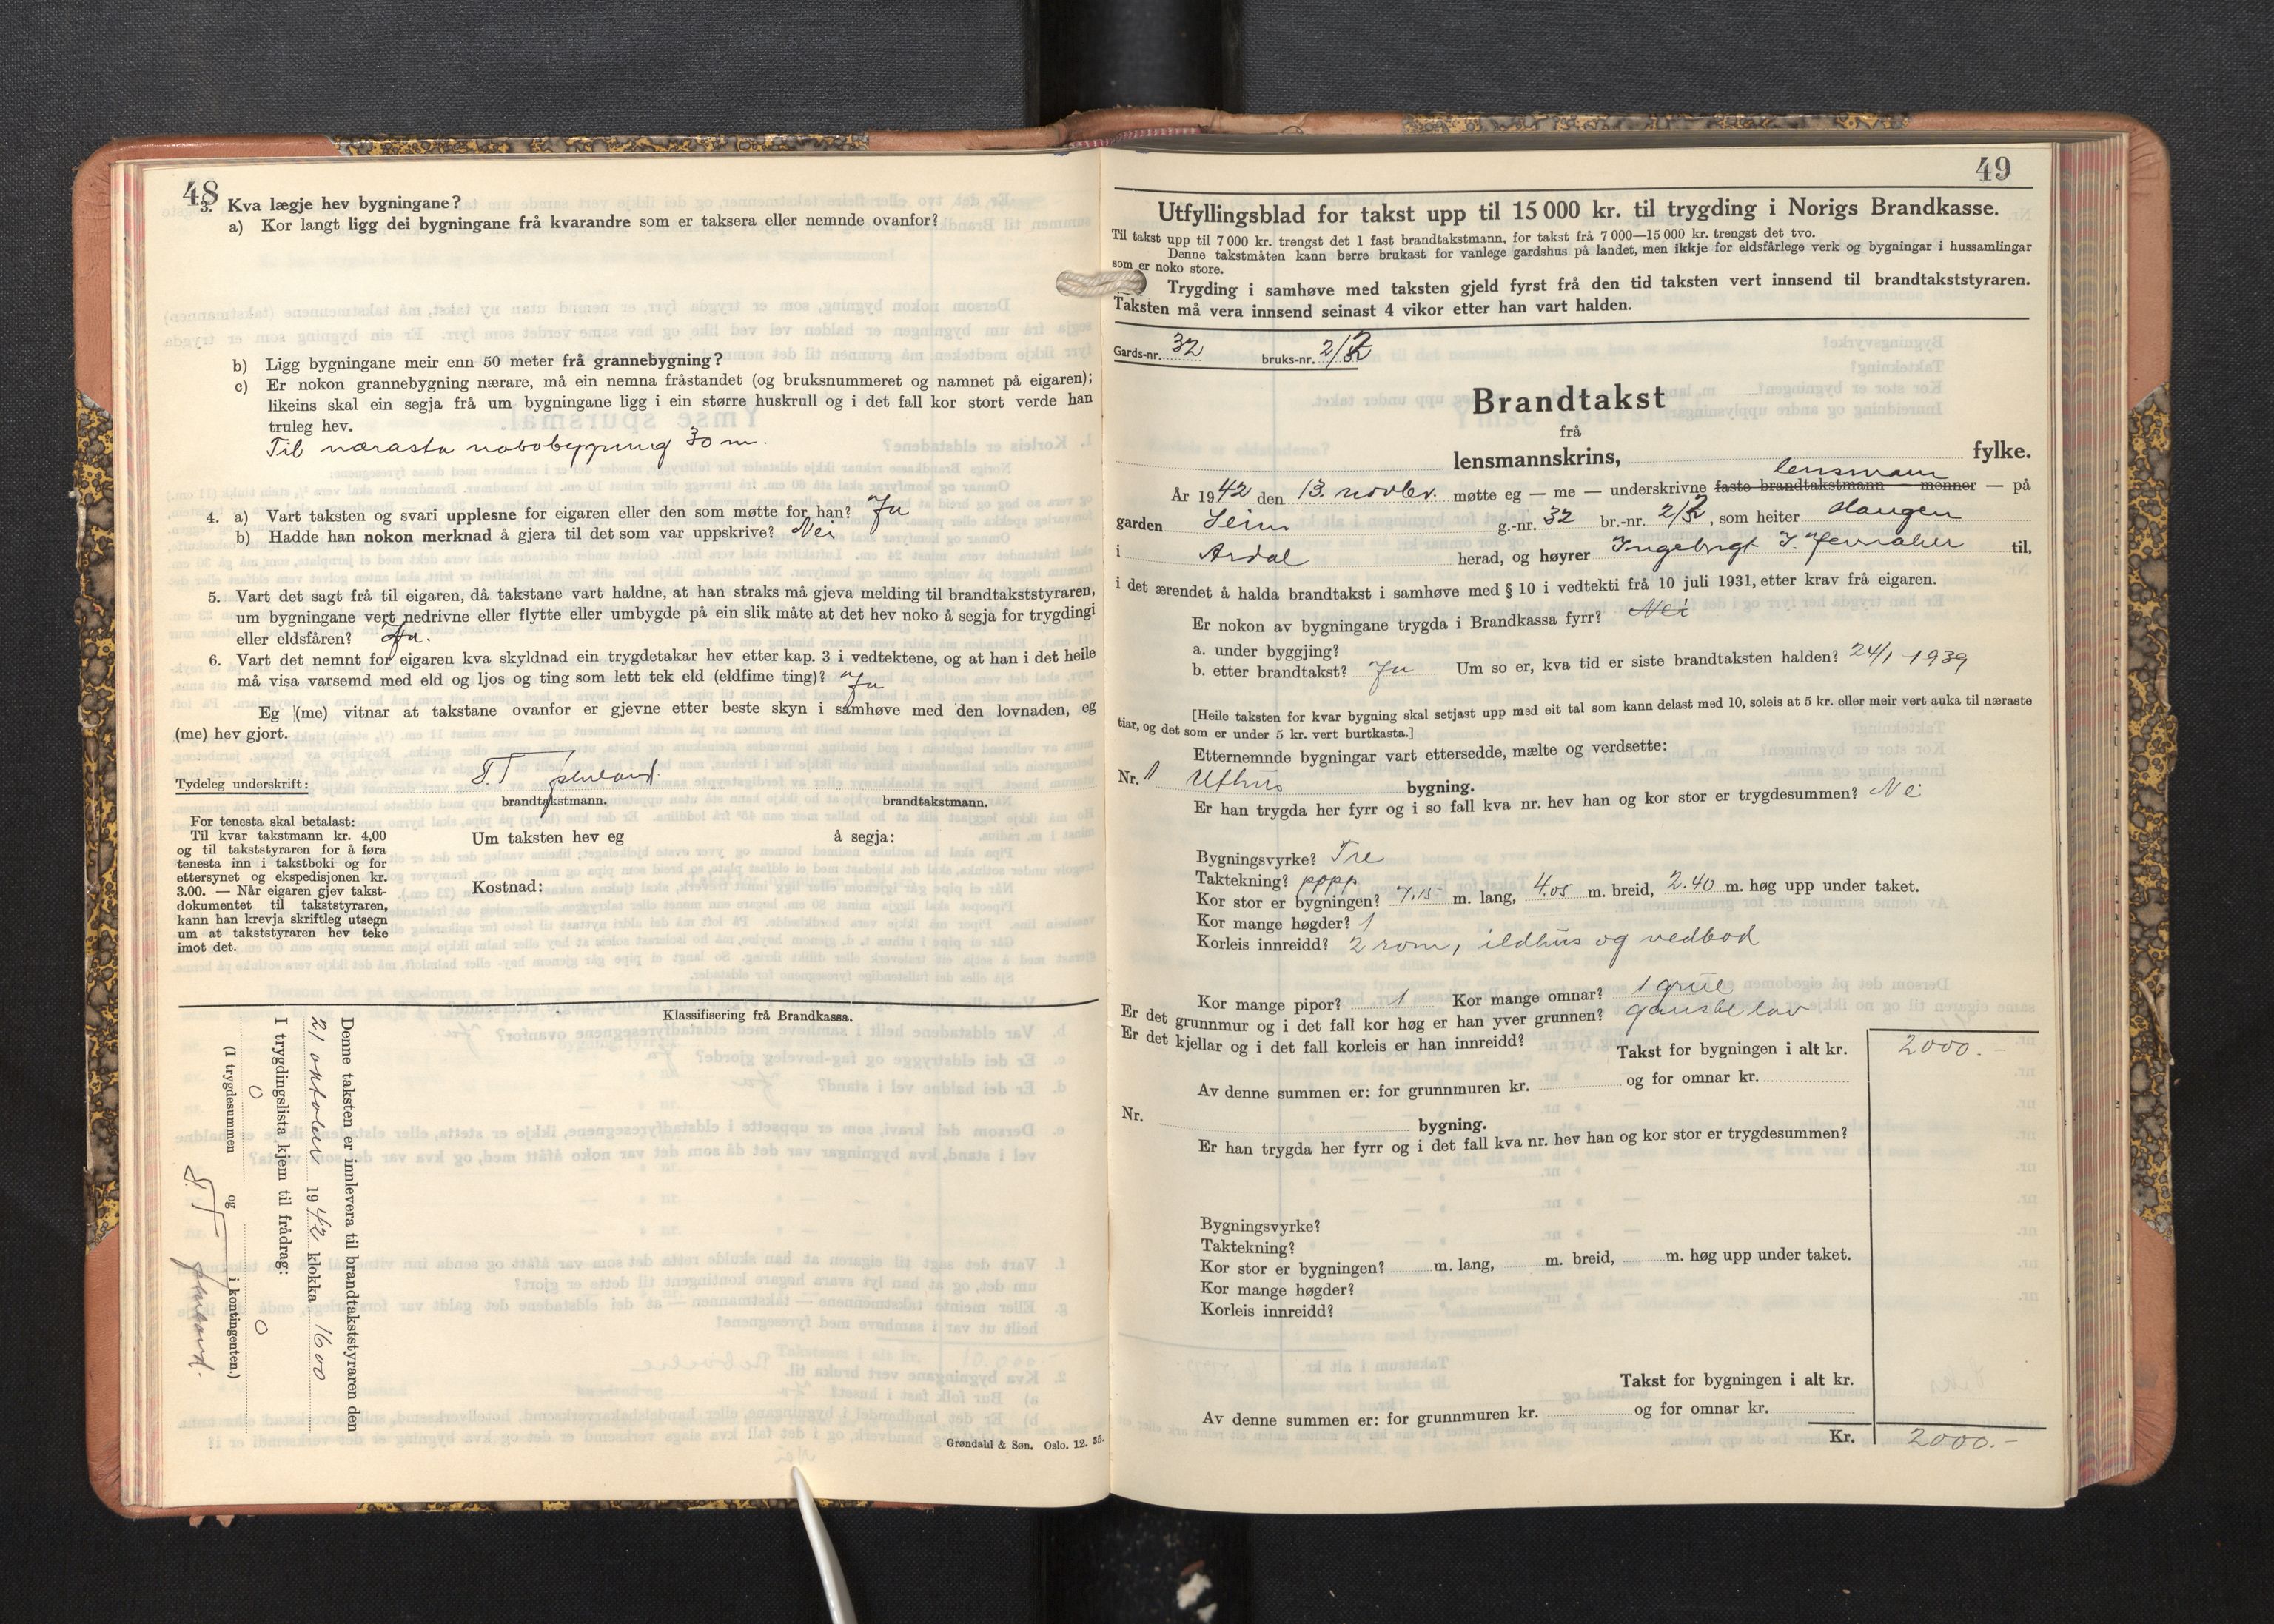 48
3. Kva lægje hev bygningane?
a) Kor langt ligg dei bygningane frå kvarandre som er taksera eller nemnde ovanfor?
b) Ligg bygningane meir enn 50 meter frå grannebygning?
c) Er nokon grannebygning nærare, må ein nemna fråstandet (og bruksnummeret og namnet på eigaren);
likeins skal ein segja frå um bygningane ligg i ein større huskrull og i det fall kor stort verde han
truleg hev.
Til nærasta nabobygning 30 m.
4. a) Vart taksten og svari upplesne for eigaren eller den som møtte for han? Ja
b) Hadde han nokon merknad å gjera til det som var uppskrive? Nei
5. Vart det sagt frå til eigaren, då takstane vart haldne, at han straks må gjeva melding til brandtakststyraren,
um bygningane vert nedrivne eller flytte eller umbygde på ein slik måte at det hev noko å segja for trygdingi
eller eldsfåren? Ja.
6. Vart det nemnt for eigaren kva skyldnad ein trygdetakar hev etter kap. 3 i vedtektene, og at han i det heile
må visa varsemd med eld og ljos og ting som lett tek eld (eldfime ting)? Ja
Eg (me) vitnar at takstane ovanfor er gjevne etter beste skyn i samhøve med den lovnaden, eg
(me) hev gjort.
Tydeleg underskrift:
brandtakstmann. brandtakstmann.
For tenesta skal betalast:
Til kvar takstmann kr. 4,00
og til takststyraren for å føra
tenesta inn i takstboki og for
ettersynet og ekspedisjonen kr.
3.00. — Når eigaren gjev takst-
dokumentet til takststyraren,
kann han krevja skriftleg utsegn
um at takststyraren hev teke
imot det.
Um taksten hev eg å segja:
Kostnad:
Klassifisering frå Brandkassa.
Denne taksten er innlevera til brandtakststyraren den
21. oktober 1942 klokka 16 00
I trygdingslista kjem til frådrag:
0 0
(I trygdesummen og i kontingenten.)
Grøndahl & Søn. Oslo. 12. 35.
49
Utfyllingsblad for takst upp til 15 000 kr. til trygding i Norigs Brandkasse.
Til takst upp til 7 000 kr. trengst det 1 fast brandtakstmann, for takst frå 7 000—15 000 kr. trengst det tvo.
Denne takstmåten kann berre brukast for vanlege gardshus på landet, men ikkje for eldsfårlege verk og bygningar i hussamlingar
som er noko store.
Trygding i samhøve med taksten gjeld fyrst frå den tid taksten vert innsend til brandtakststyraren.
Taksten må vera innsend seinast 4 vikor etter han vart halden.
Gards-nr. 32 bruks-nr. 2/2
Brandtakst
frå
lensmannskrins, fylke.
lensmann
År 1942 den 13. novbr. møtte eg — me — underskrivne faste brandtakstmann — menner — på
garden Seim g.-nr. 32 br.-nr. 2/2, som heiter Haugen
i Årdal herad, og høyrer Ingeborg J. til,
i det ærendet å halda brandtakst i samhøve med § 10 i vedtekti frå 10 juli 1931, etter krav frå eigaren.
Er nokon av bygningane trygda i Brandkassa fyrr? Nei
a. under byggjing?
b. etter brandtakst? Ja Um so er, kva tid er siste brandtaksten halden? 24/1 - 1939
[Heile taksten for kvar bygning skal setjast upp med eit tal som kann delast med 10, soleis at 5 kr. eller meir vert auka til næraste
tiar, og det som er under 5 kr. vert burtkasta.]
Etternemnde bygningar vart ettersedde, mælte og verdsette:
Nr. 1 Uthus bygning.
Er han trygda her fyrr og i so fall kva nr. hev han og kor stor er trygdesummen? Nei
Bygningsvyrke? Tre
Taktekning? papp
Kor stor er bygningen? 7,15 m. lang, 4.05 m. breid, 2.40 m. høg upp under taket.
Kor mange høgder? 1
Korleis innreidd? 2 rom, ildhus og vedbod
Kor mange pipor? 1 Kor mange omnar? 1 grue
Er det grunnmur og i det fall kor høg er han yver grunnen? ganske lav
Er det kjellar og i det fall korleis er han innreidd?
Takst for bygningen i alt kr. 2000.-
Av denne summen er: for grunnmuren kr. og for omnar kr.
Nr. bygning.
Er han trygda her fyrr og i det fall kva nr. hev han og kor stor er trygdesummen?
Bygningsvyrke?
Taktekning?
Kor stor er bygningen? m. lang, m. breid, m. høg upp under taket.
Kor mange høgder?
Korleis innreidd?
Takst for bygningen i alt kr.
Av denne summen er: for grunnmuren kr. og for omnar kr.
Kr. 2000.-